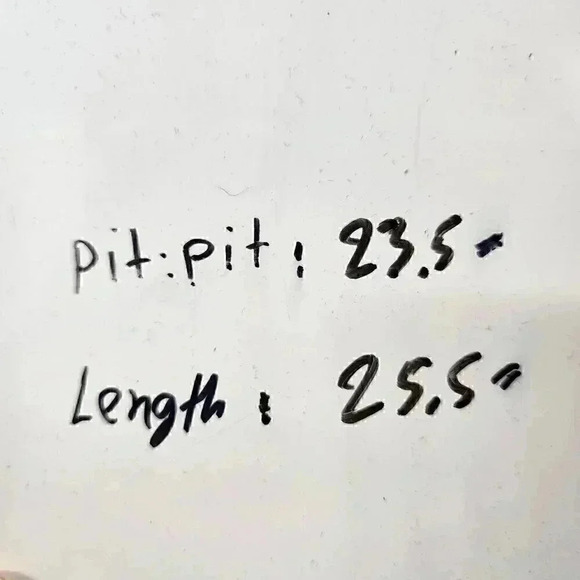 pit:pit: 23.5"
Length: 25.5"